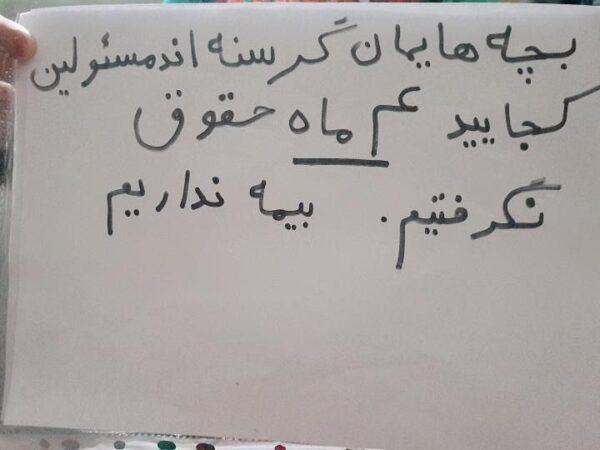 بچه هایمان گرسنه اند مسئولین
کجایید ۴ ماه حقوق
نگرفتیم. بیمه نداریم